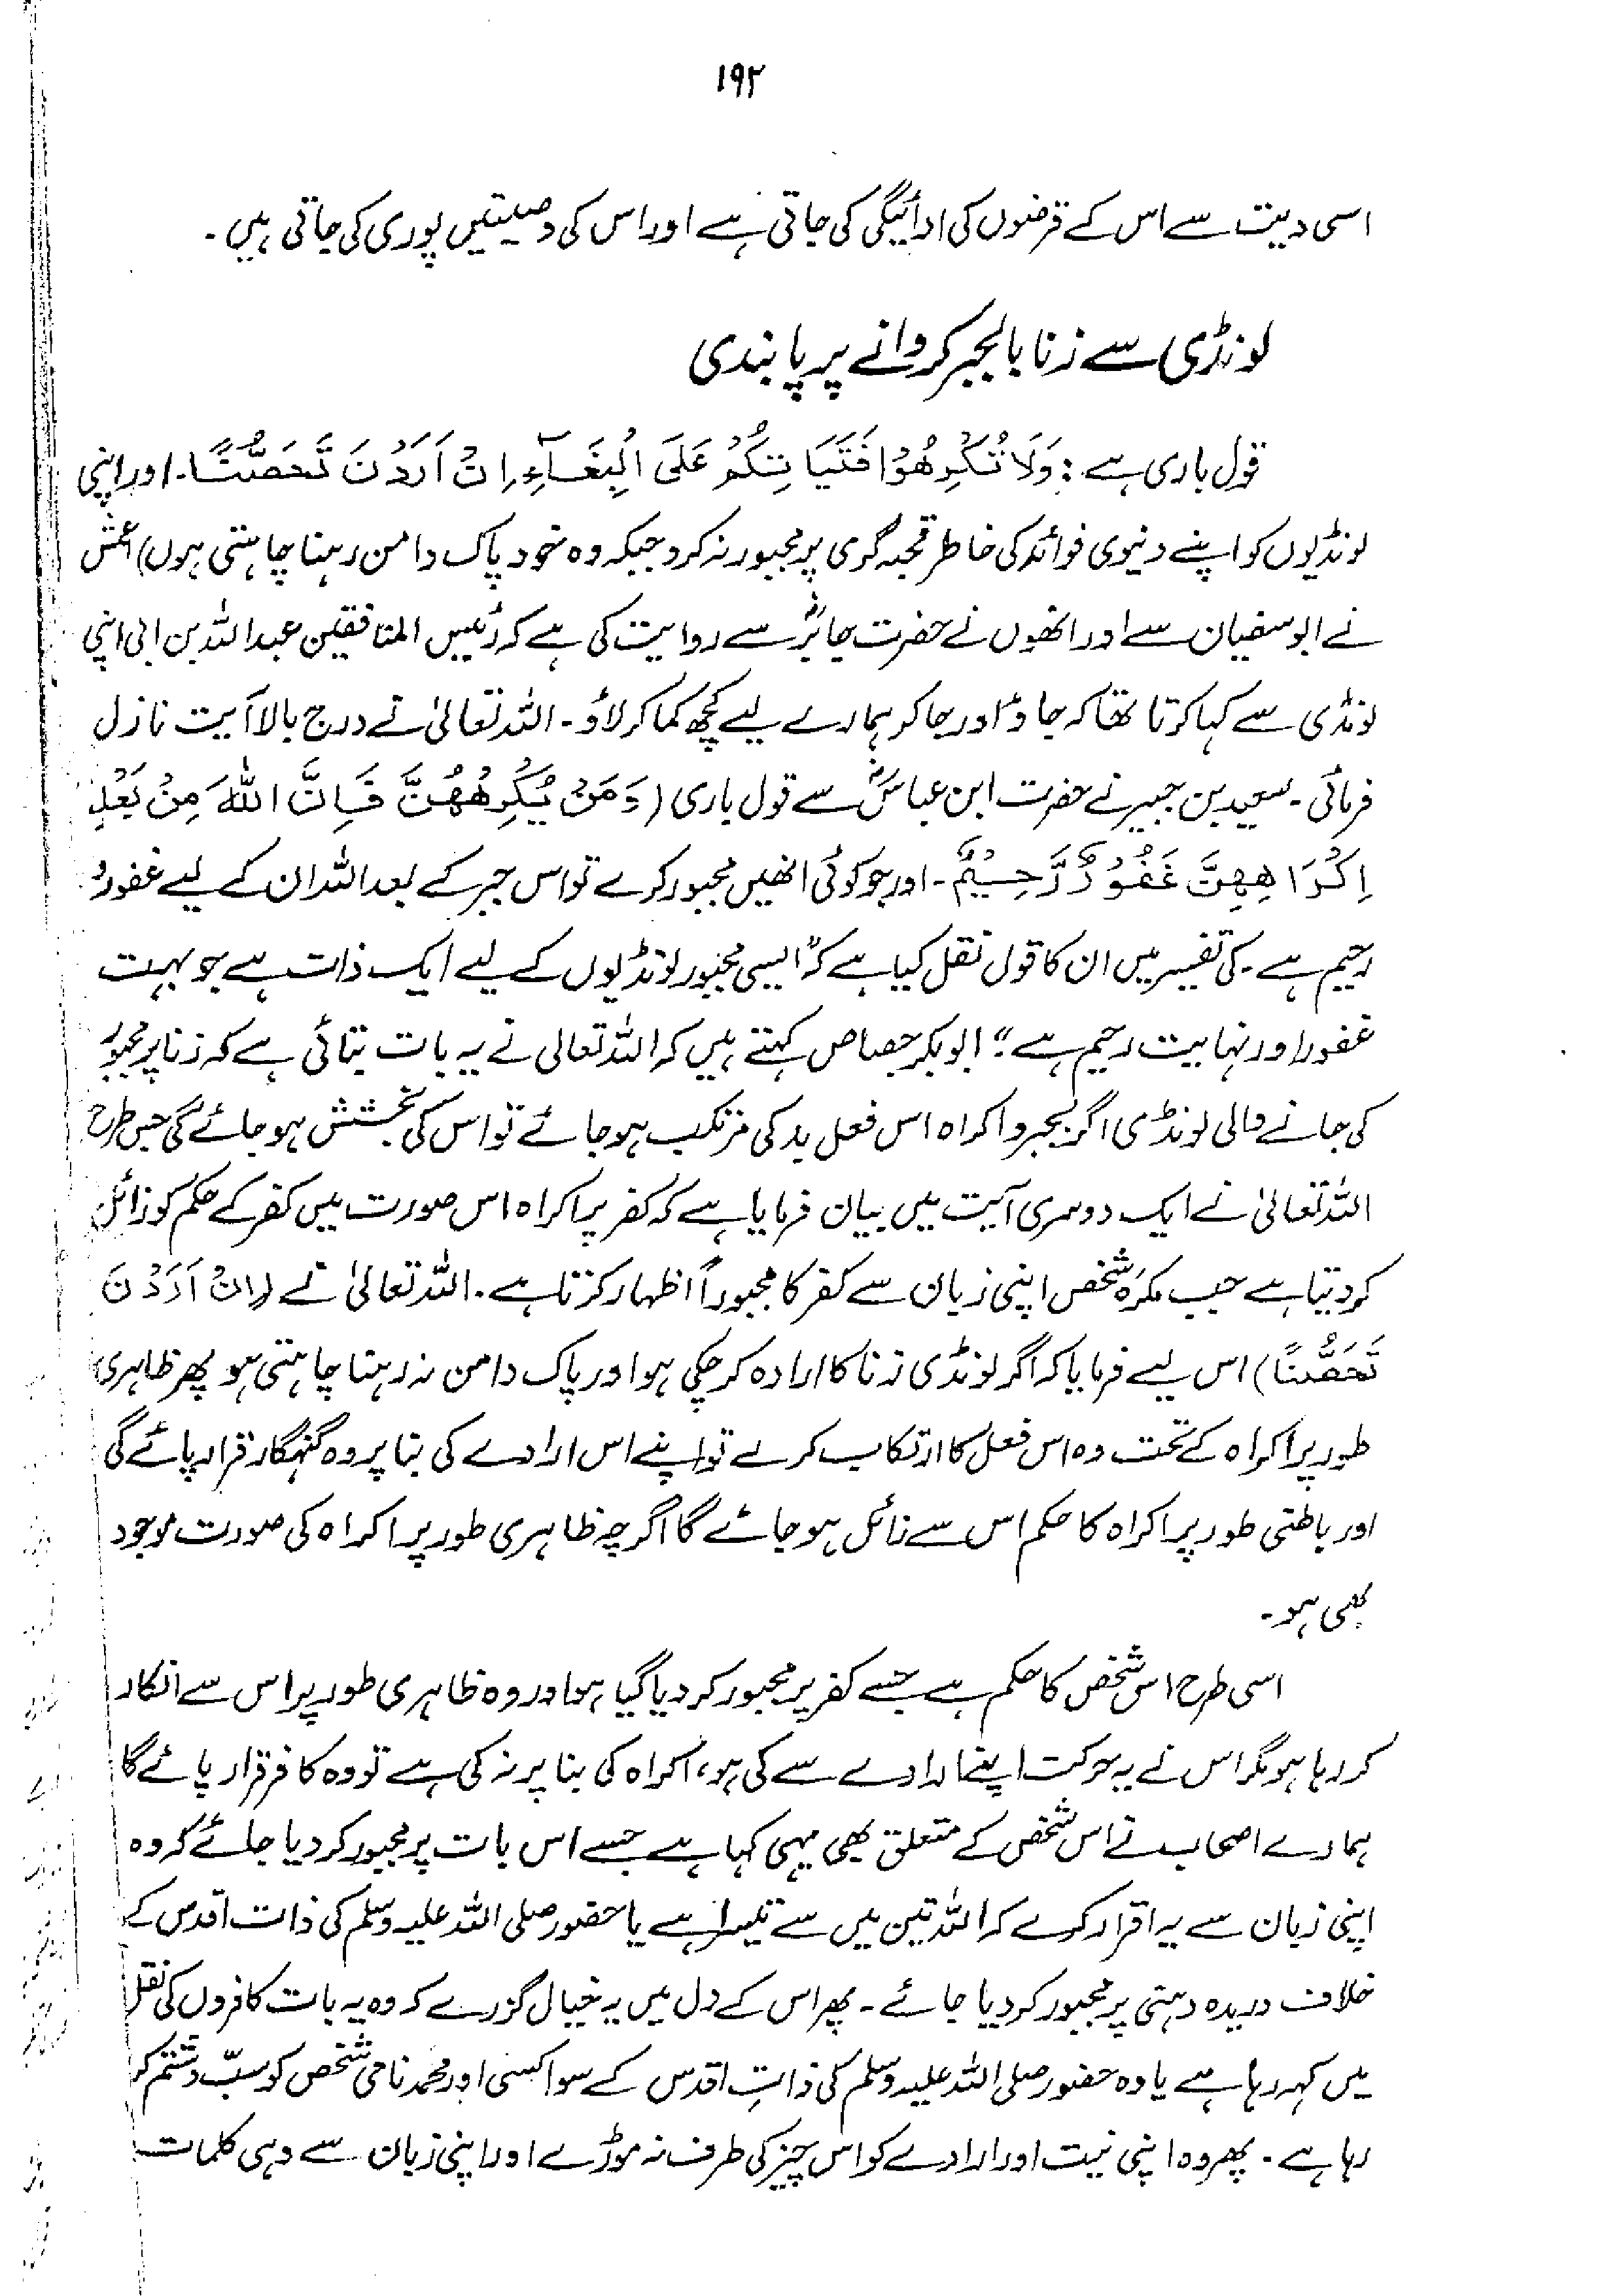 ۱۹۲
اسی دیت سے اس کے قرضوں کی ادائیگی کی جاتی ہے اور اس کی وصیتیں پوری کی جاتی ہیں۔
لونڈی سے زنا بالجبر کروانے پر پابندی
قول باری ہے: وَلَا تُكْرِهُوْا فَتَيَاتِكُمْ عَلَى الْبِغَآءِ اِنْ اَرَدْنَ تَحَصُّنًا۔ اور اپنی
لونڈیوں کو اپنے دنیوی فوائد کی خاطر قحبہ گری پر مجبور نہ کرو جبکہ وہ خود پاک دامن رہنا چاہتی ہوں) اعمش
نے ابوسفیان سے اور انھوں نے حضرت جابرؓ سے روایت کی ہے کہ رئیس المنافقین عبداللہ بن ابی اپنی
لونڈی سے کہا کرتا تھا کہ جاؤ اور جا کر ہمارے لیے کچھ کما کر لاؤ۔ اللہ تعالیٰ نے درج بالا آیت نازل
فرمائی۔ سعید بن جبیر نے حضرت ابن عباسؓ سے قول باری (وَمَنْ يُّكْرِهْهُنَّ فَاِنَّ اللهَ مِنْ بَعْدِ
اِكْرَاهِهِنَّ غَفُوْرٌ رَّحِيْمٌ۔ اور جو کوئی انھیں مجبور کرے تو اس جبر کے بعد اللہ ان کے لیے غفور و
رحیم ہے۔ کی تفسیر میں ان کا قول نقل کیا ہے کہ "ایسی مجبور لونڈیوں کے لیے ایک ذات ہے جو بہت
غفور اور نہایت رحیم ہے"؛ ابوبکر جصاص کہتے ہیں کہ اللہ تعالی نے یہ بات بتائی ہے کہ زنا پر مجبور
کی جانے والی لونڈی اگر بجبر و اکراہ اس فعل بد کی مرتکب ہو جائے تو اس کی بخشش ہو جائے گی جس طرح
اللہ تعالیٰ نے ایک دوسری آیت میں بیان فرمایا ہے کہ کفر پر اکراہ اس صورت میں کفر کے حکم کو زائل
کر دیتا ہے جب مکرَہ شخص اپنی زبان سے کفر کا مجبوراً اظہار کرتا ہے۔ اللہ تعالیٰ نے (اِنْ اَرَدْنَ
تَحَصُّنًا) اس لیے فرمایا کہ اگر لونڈی زنا کا ارادہ کر چکی ہو اور پاک دامن نہ رہنا چاہتی ہو پھر ظاہری
طور پر اکراہ کے تحت وہ اس فعل کا ارتکاب کرلے تو اپنے اس ارادے کی بنا پر وہ گنہگار قرار پائے گی
اور باطنی طور پر اکراہ کا حکم اس سے زائل ہو جائے گا اگرچہ ظاہری طور پر اکراہ کی صورت موجود
بھی ہو۔
اسی طرح اس شخص کا حکم ہے جسے کفر پر مجبور کر دیا گیا ہو اور وہ ظاہری طور پر اس سے انکار
کر رہا ہو مگر اس نے یہ حرکت اپنے ارادے سے کی ہو، اکراہ کی بنا پر نہ کی ہے تو وہ کافر قرار پائے گا
ہمارے اصحاب نے اس شخص کے متعلق بھی یہی کہا ہے جسے اس بات پر مجبور کر دیا جائے کہ وہ
اپنی زبان سے یہ اقرار کرے کہ اللہ تین میں سے تیسرا ہے یا حضور صلی اللہ علیہ وسلم کی ذات اقدس کے
خلاف دریدہ دہنی پر مجبور کر دیا جائے۔ پھر اس کے دل میں یہ خیال گزرے کہ وہ یہ بات کافروں کی نقل
میں کہہ رہا ہے یا وہ حضور صلی اللہ علیہ وسلم کی ذاتِ اقدس کے سوا کسی اور محمد نامی شخص کو سبّ و شتم کر
رہا ہے۔ پھر وہ اپنی نیت اور ارادے کو اس چیز کی طرف نہ موڑے اور اپنی زبان سے وہی کلمات